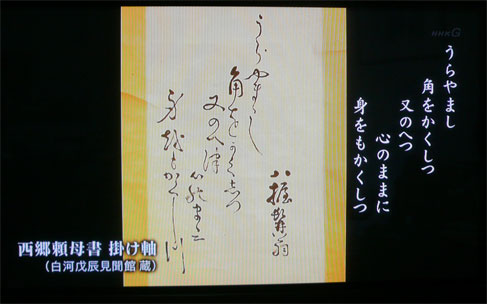 NHK G
うらやまし
角をかくしつ
又のへつ
心のままに
身をもかくしつ
うらやまし
角をかくしつ
又のへ津
心のまゝに
身越もかくしつ
八握髯翁
西郷頼母書 掛け軸
（白河戊辰見聞館 蔵）